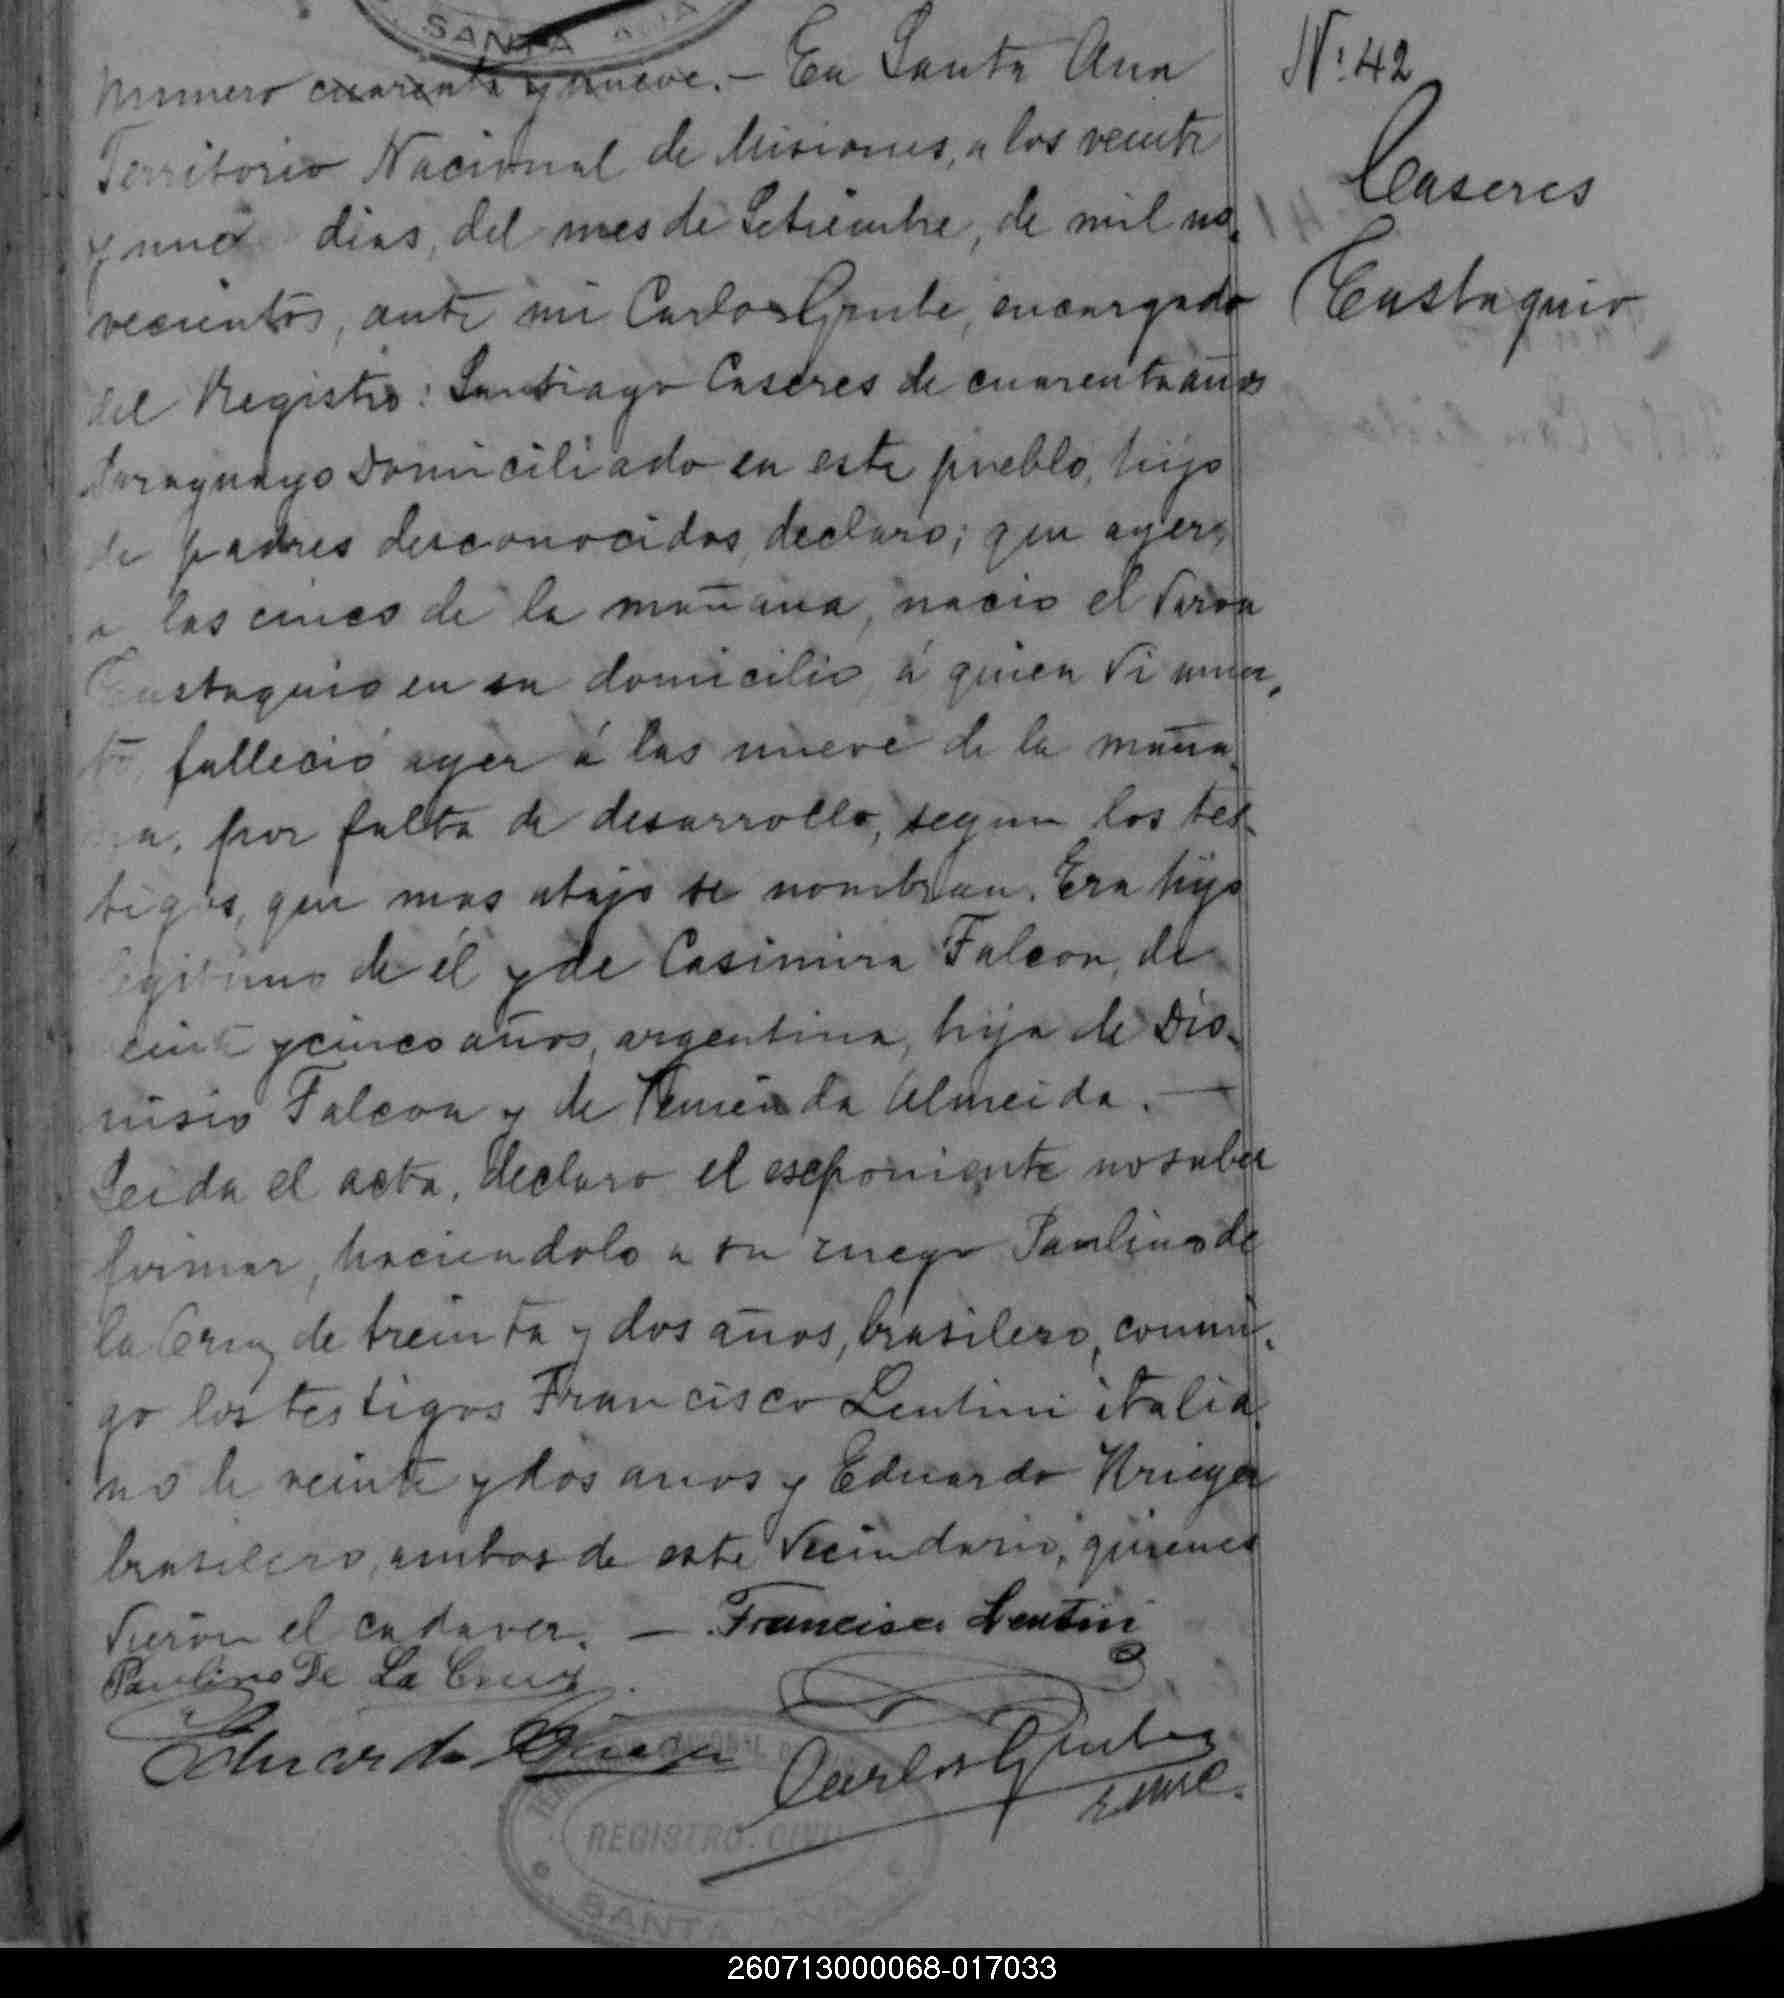 SANTA ANA
Numero cuarenta y nueve. — En Santa Ana
Territorio Nacional de Misiones, a los veinte
y una dias, del mes de Setiembre, de mil no-
vecientos, ante mi Carlos Grube, encargado
del Registro: Santiago Caseres de cuarenta años
Paraguayo Domiciliado en este pueblo, hijo
de padres desconocidos, declaro; que ayer,
a las cinco de la mañana, nacio el Varon
Eustaquio en su domicilio, á quien Vi muer-
to, falleció ayer á las nueve de la maña-
na, por falta de desarrollo, segun los tes-
tigos, que mas abajo se nombran. Era hijo
legitimo de él y de Casimira Falcon, de
veinte y cinco años, argentina, hija de Dio-
nisio Falcon y de Almeida. —
Leida el acta, declaro el esxponiente no saber
firmar, haciendolo a su ruego Paulino de
la Cruz de treinta y dos años, brasilero, conmi-
go los testigos Francisco Lentini italia-
no de veinte y dos anos y Eduardo Krieger
brasilero, ambos de este Vecindario, quienes
Vieron el cadaver. — Francisco Lentini
Paulino De La Cruz
Eduardo Krieger Carlos Grube
REGISTRO CIVIL
SANTA ANA
Nº 42
Caseres
Eustaquio
260713000068-017033